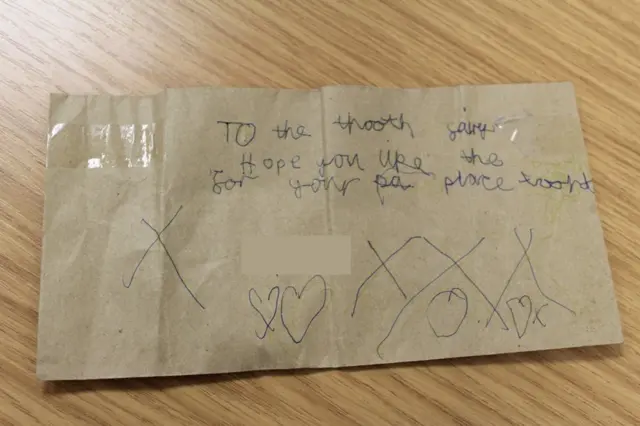 TO the thooth fairy
Hope you like the
for your pa place tooht
X
X X X O x